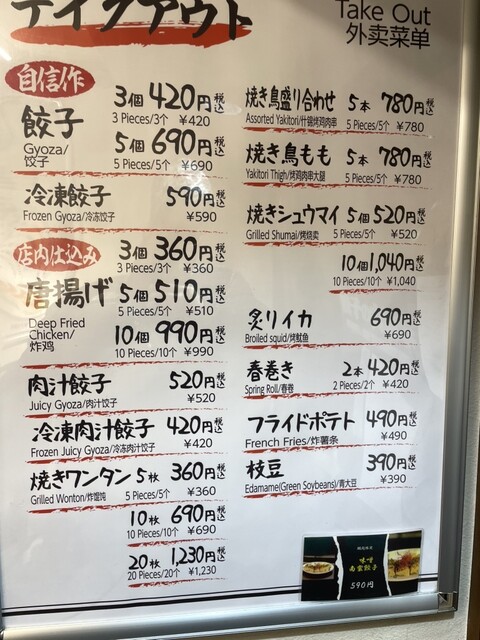 テイクアウト
Take Out
外卖菜单
自信作
餃子
Gyoza/
饺子
3個 420円 税込
3 Pieces/3个 ¥420
5個 690円 税込
5 Pieces/5个 ¥690
冷凍餃子 590円 税込
Frozen Gyoza/冷冻饺子 ¥590
店内仕込み
唐揚げ
Deep Fried
Chicken/
炸鸡
3個 360円 税込
3 Pieces/3个 ¥360
5個 510円 税込
5 Pieces/5个 ¥510
10個 990円 税込
10 Pieces/10个 ¥990
肉汁餃子 520円 税込
Juicy Gyoza/肉汁饺子 ¥520
冷凍肉汁餃子 420円 税込
Frozen Juicy Gyoza/冷冻肉汁饺子 ¥420
焼きワンタン 5枚 360円 税込
Grilled Wonton/炸馄饨 5 Pieces/5个 ¥360
10枚 690円 税込
10 Pieces/10个 ¥690
20枚 1,230円 税込
20 Pieces/20个 ¥1,230
焼き鳥盛り合わせ 5本 780円 税込
Assorted Yakitori/什锦烤鸡肉串 5 Pieces/5个 ¥780
焼き鳥もも 5本 780円 税込
Yakitori Thigh/烤鸡肉串大腿 5 Pieces/5个 ¥780
焼きシュウマイ 5個 520円 税込
Grilled Shumai/烤烧卖 5 Pieces/5个 ¥520
10個 1,040円 税込
10 Pieces/10个 ¥1,040
炙りイカ 690円 税込
Broiled squid/烤鱿鱼 ¥690
春巻き 2本 420円 税込
Spring Roll/春卷 2 Pieces/2个 ¥420
フライドポテト 490円 税込
French Fries/炸薯条 ¥490
枝豆 390円 税込
Edamame(Green Soybeans)/青大豆 ¥390
590円